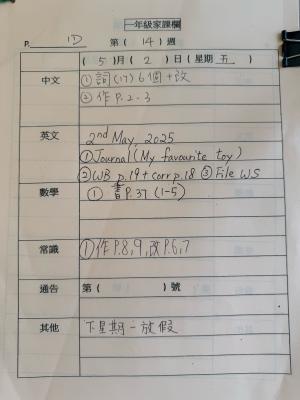 一年級家課欄
P. 1D 第 ( 14 ) 週
( 5 ) 月 ( 2 ) 日 ( 星期 五 )
中文 ① 詞(17) 6個 + 改
② 作 P.2-3
英文 2nd May, 2025
① Journal (My favourite toy)
② WB p.19 + corr p.18 ③ File WS
數學 ① 書 P.37 (1-5)
常識 ① 作 P.8,9, 改 P.6,7
通告 第 ( ) 號
其他 下星期一放假